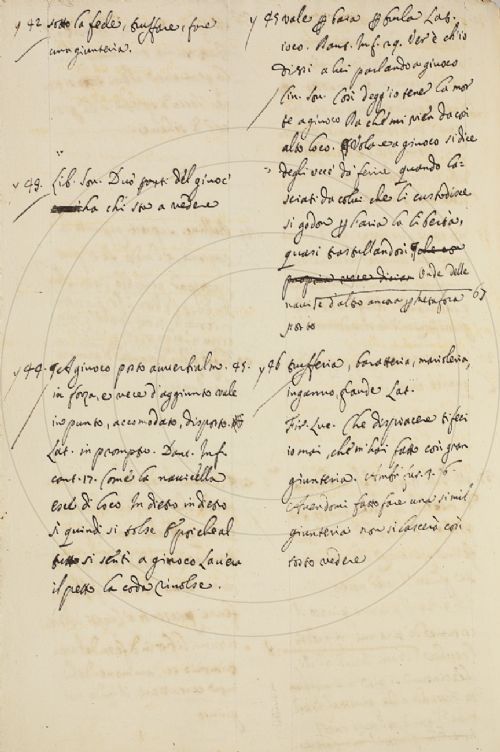 42 sotto la fede, truffare, fare
una giunteria.
43. Lib. Son. Due parti del giuoc'
ha chi sta a vedere
44. A giuoco posto avverbialm.
in forza, e vece d'aggiunto vale
in punto, accomodato, disposto.
Lat. in promptu. Dant. Inf.
cant. 17. Come la navicella
esce di loco In dietro in dietro
sì quindi si tolse E poi che al
tutto si sentì a giuoco Là v'era
il petto la coda rivolse.
45 vale p baia p burla Lat.
ioco. Dant. Inf. 29. Ver'è ch'io
dissi a lui parlando a giuoco
Cin. Son. Così degg'io tener la mor
te a giuoco Da che mi vien da così
alto loco. Volare a giuoco si dice
degli uccelli da ferire quando la-
sciati da colui che li custodisce
si godon p l'aria la libertà,
quasi trastullandosi
Onde delle
navi e d'altro ancora p metafora
67
46 truffería, baratteria, marioleria,
inganno, fraude Lat.
Fir. Luc. Che dispiacere ti feci
io mai, che m'hai fatto così gran
giunteria.
Avendomi fatto fare una simil
giunteria non si lascerà così
tosto vedere